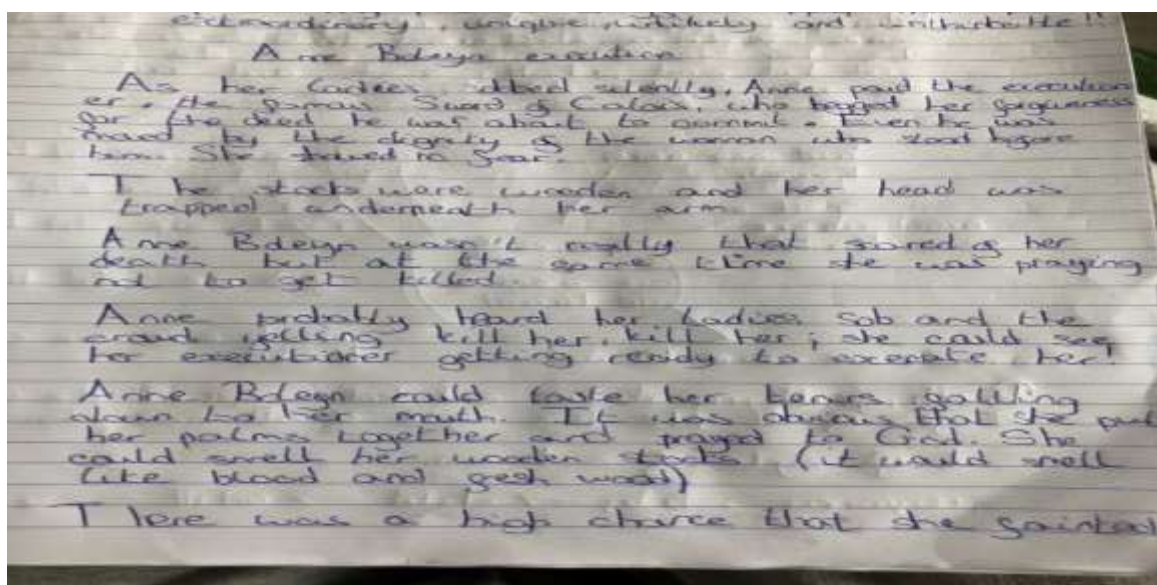 extraordinary, unique, unlikely and
Anne Boleyn execution
As her Ladies sobbed silently, Anne paid the execution
er, the famous Sword of Calais, who begged her forgiveness
for the deed he was about to commit. Even he was
moved by the dignity of the woman who stood before
him. She in fear.
The stocks were wooden and her head was
trapped underneath her arm
Anne Boleyn wasn't really that scared of her
death but at the same time she was praying
not to get killed.
Anne probably heard her Ladies sob and the
crowd yelling kill her, kill her; she could see
her executioner getting ready to execute her!
Anne Boleyn could taste her tears falling
down to her mouth. It was obvious that she put
her palms together and prayed to God. She
could smell her wooden stocks (it would smell
like blood and fresh wood)
There was a high chance that she fainted